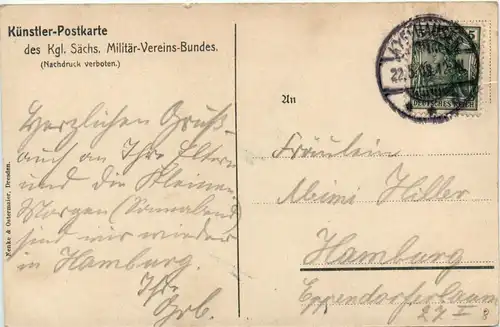 Künstler-Postkarte
des Kgl. Sächs. Militär-Vereins-Bundes.
(Nachdruck verboten.)
Nenke & Ostermaier, Dresden.
Herzlichen Gruß
auch an Ihre Eltern
und die Kleinen
Morgen (Sonnabend)
sind wir wieder
in Hamburg.
Ihr
5
DEUTSCHES REICH
An
Fräulein
Mimi Hiller
Hamburg
Eppendorferbaum
27 I